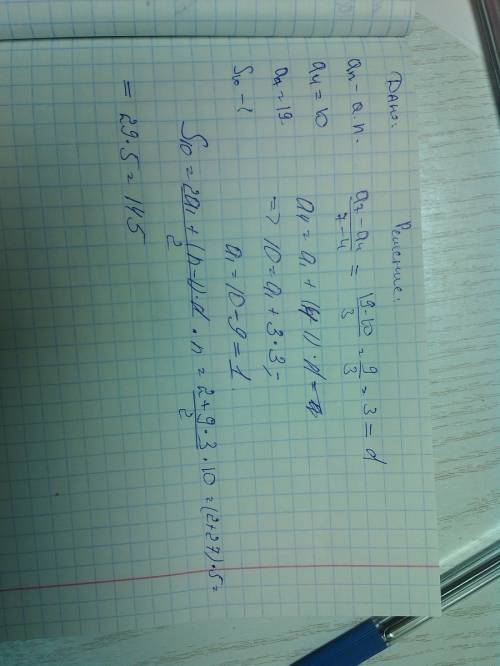 Дано:
an – а.п.
a4 = 10
a7 = 19
S10 – ?
Решение:
(a7 – a4)/(7 – 4) = (19 - 10)/3 = 9/3 = 3 = d
a4 = a1 + (4-1)·d =
=> 10 = a1 + 3·3;
a1 = 10 – 9 = 1
S10 = (2a1 + (n–1)·d)/2 · n = (2 + 9·3)/2 · 10 = (2+27)·5 =
= 29·5 = 145